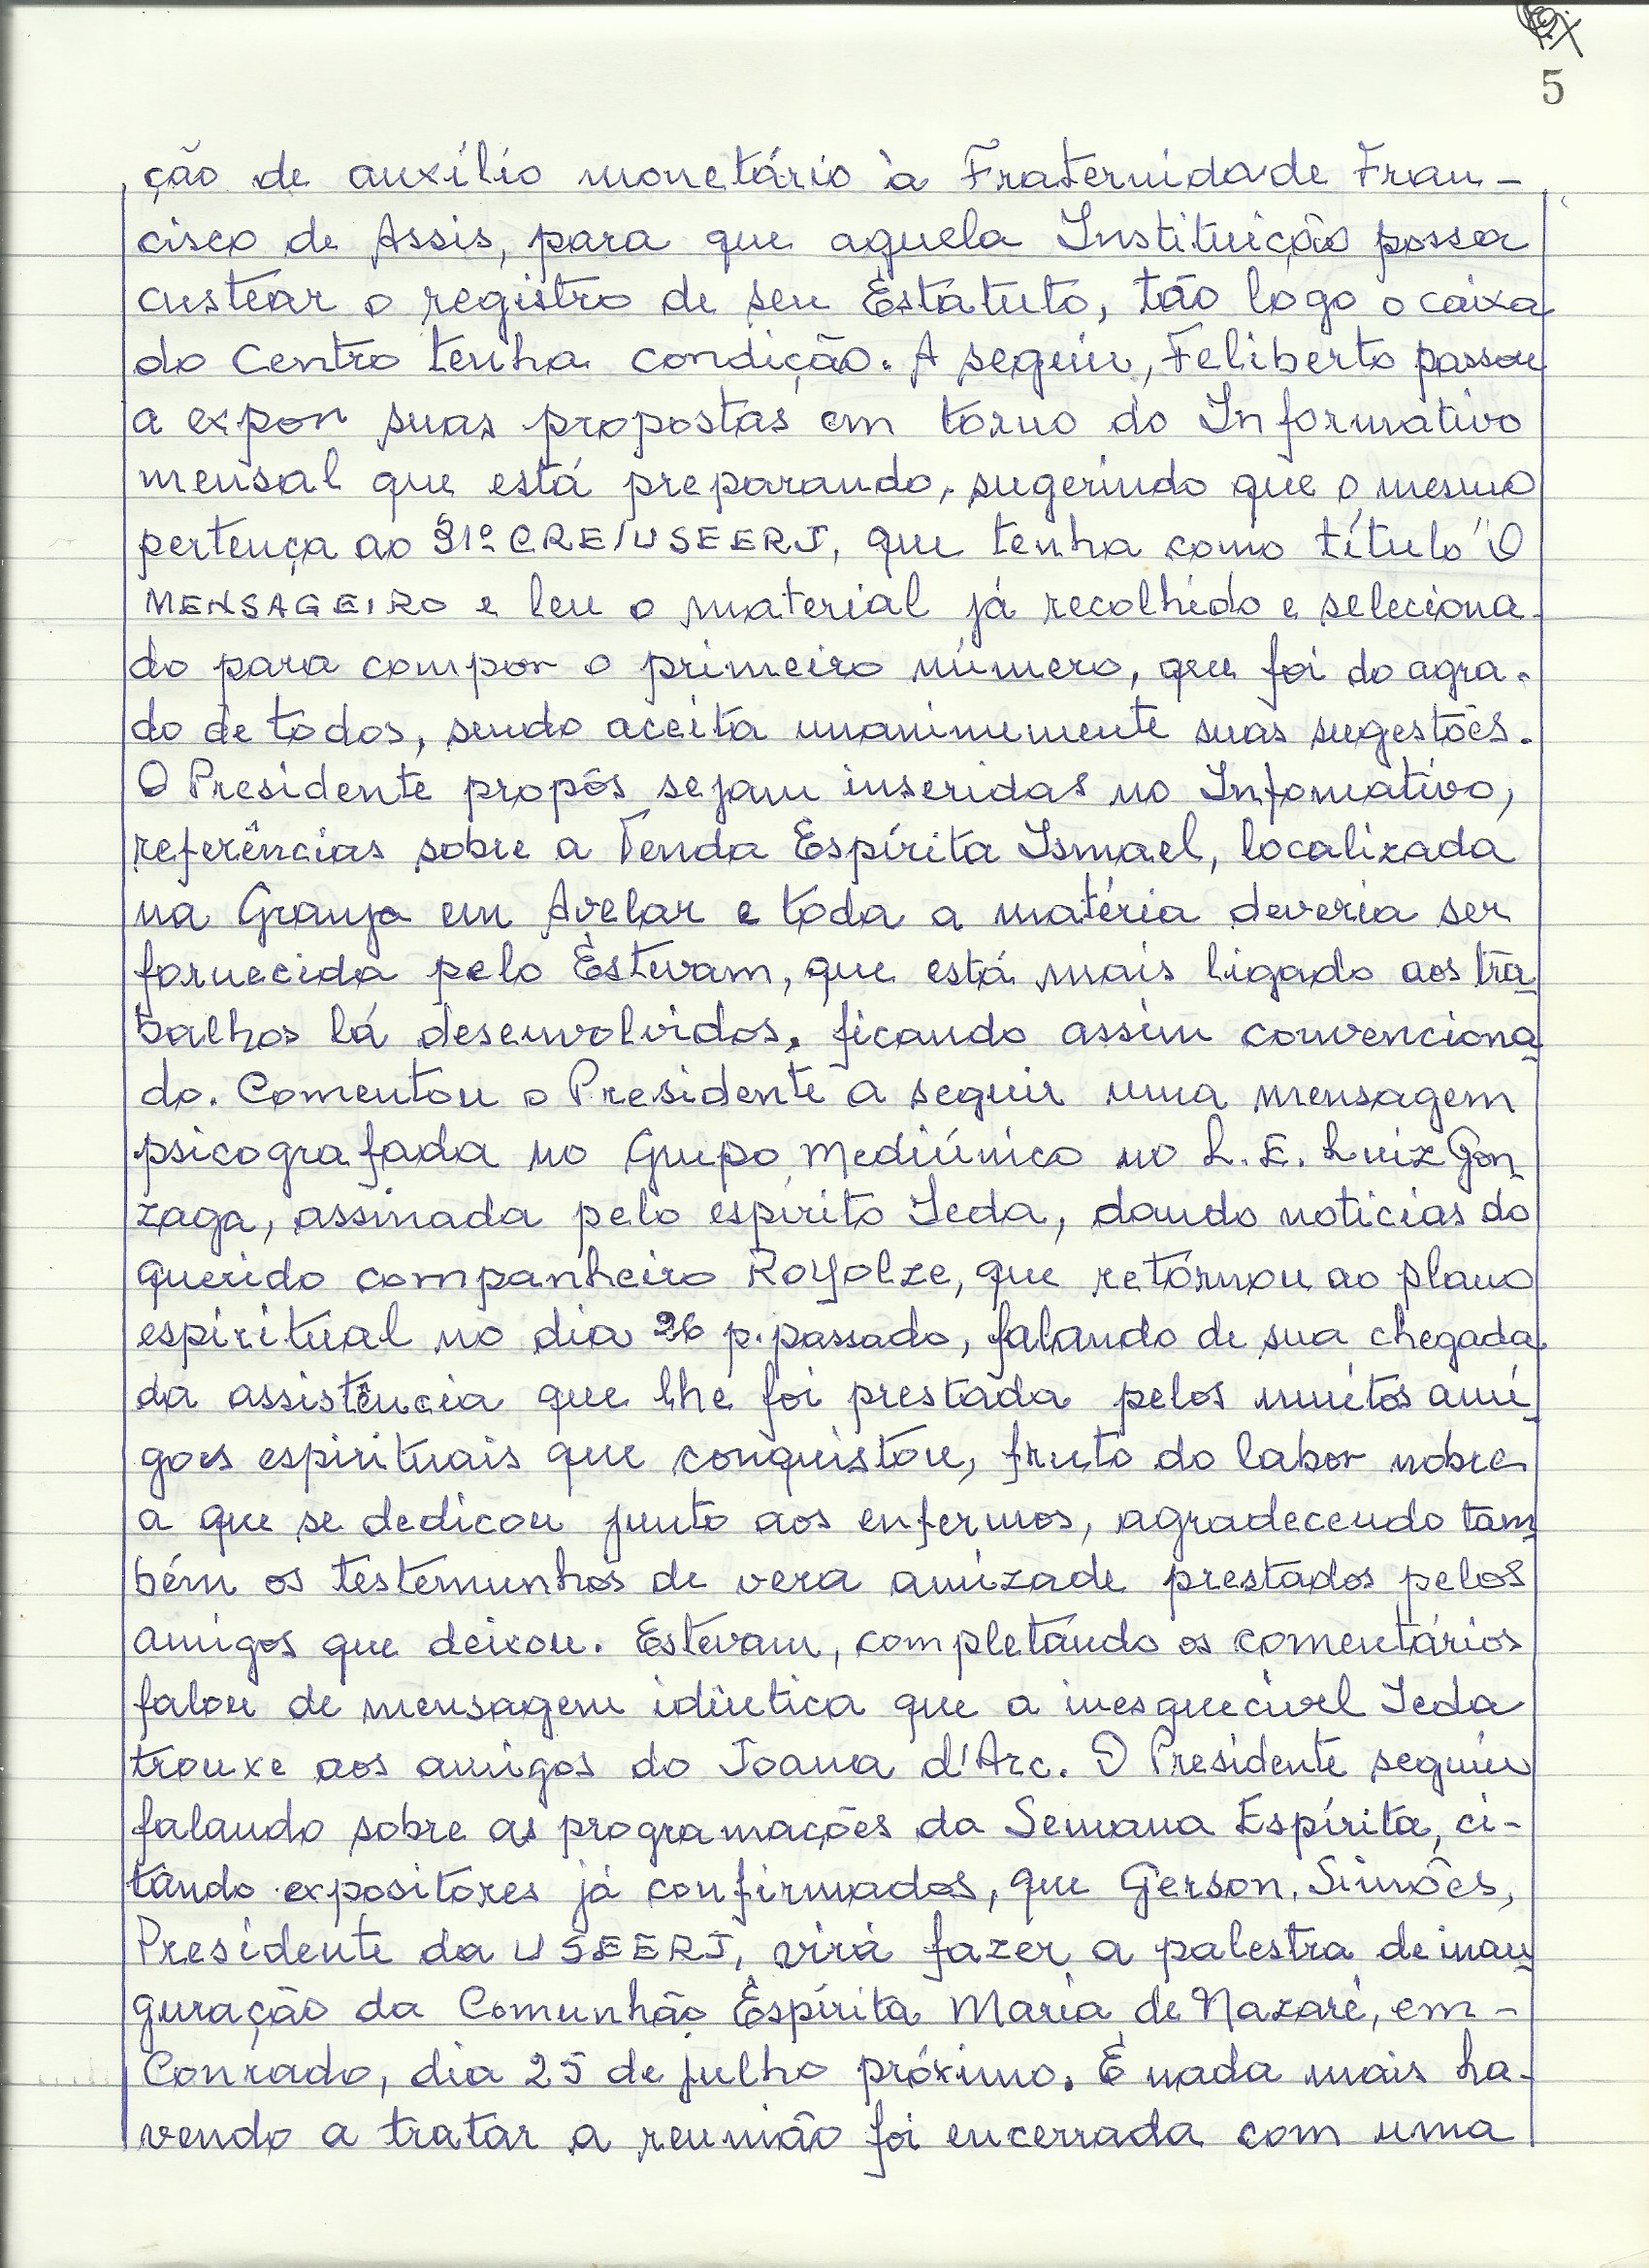 5
ção de auxílio monetário à Fraternidade Fran-
cisco de Assis, para que aquela Instituição possa
custear o registro de seu Estatuto, tão logo o caixa
do Centro tenha condição. A seguir, Feliberto passou
a expor suas propostas em torno do Informativo
mensal que está preparando, sugerindo que o mesmo
pertença ao 31º CRE/USEERJ, que tenha como título "O
MENSAGEIRO e leu o material já recolhido e seleciona-
do para compor o primeiro número, que foi do agra-
do de todos, sendo aceita unanimemente suas sugestões.
O Presidente propôs sejam inseridas no Infomativo,
referências sobre a Tenda Espírita Ismael, localizada
na Granja em Avelar e toda a matéria deveria ser
fornecida pelo Estevam, que está mais ligado aos tra
balhos lá desenvolvidos, ficando assim convenciona
do. Comentou o Presidente a seguir uma mensagem
psicografada no Grupo Mediúnico no L. E. Luiz Gon
zaga, assinada pelo espírito Ieda, dando noticias do
querido companheiro Royolze, que retornou ao plano
espiritual no dia 26 p. passado, falando de sua chegada,
da assistência que lhe foi prestada pelos muitos ami
gos espirituais que conquistou, fruto do labor nobre
a que se dedicou junto aos enfermos, agradecendo tam
bém os testemunhos de vera amizade prestados pelos
amigos que deixou. Estevam, completando os comentários
falou de mensagem idêntica que a inesquecivel Ieda
trouxe aos amigos do Joana d'Arc. O Presidente seguiu
falando sobre as programações da Semana Espírita, ci-
tando expositores já confirmados, que Gerson Simões,
Presidente da USEERJ, virá fazer a palestra de inau
guração da Comunhão Espírita Maria de Nazaré, em -
Conrado, dia 25 de julho próximo. E nada mais ha-
vendo a tratar a reunião foi encerrada com uma